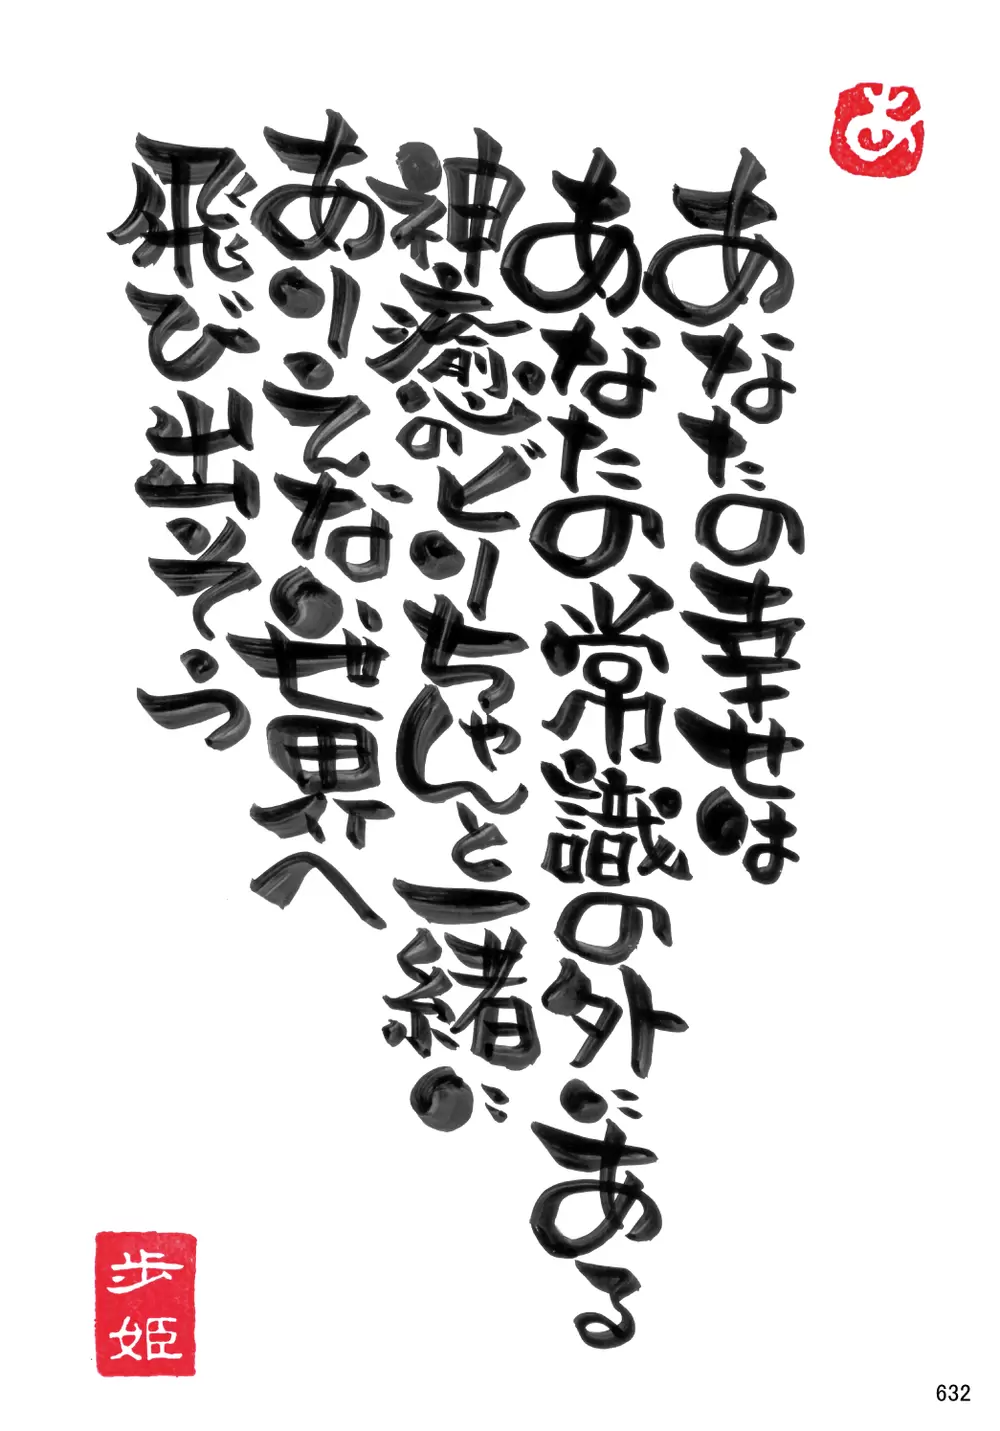 あ
あなたの幸せは
あなたの常識の外にある
神癒のどーちゃんと一緒に
ありえない世界へ
飛び出そう
歩姫
632